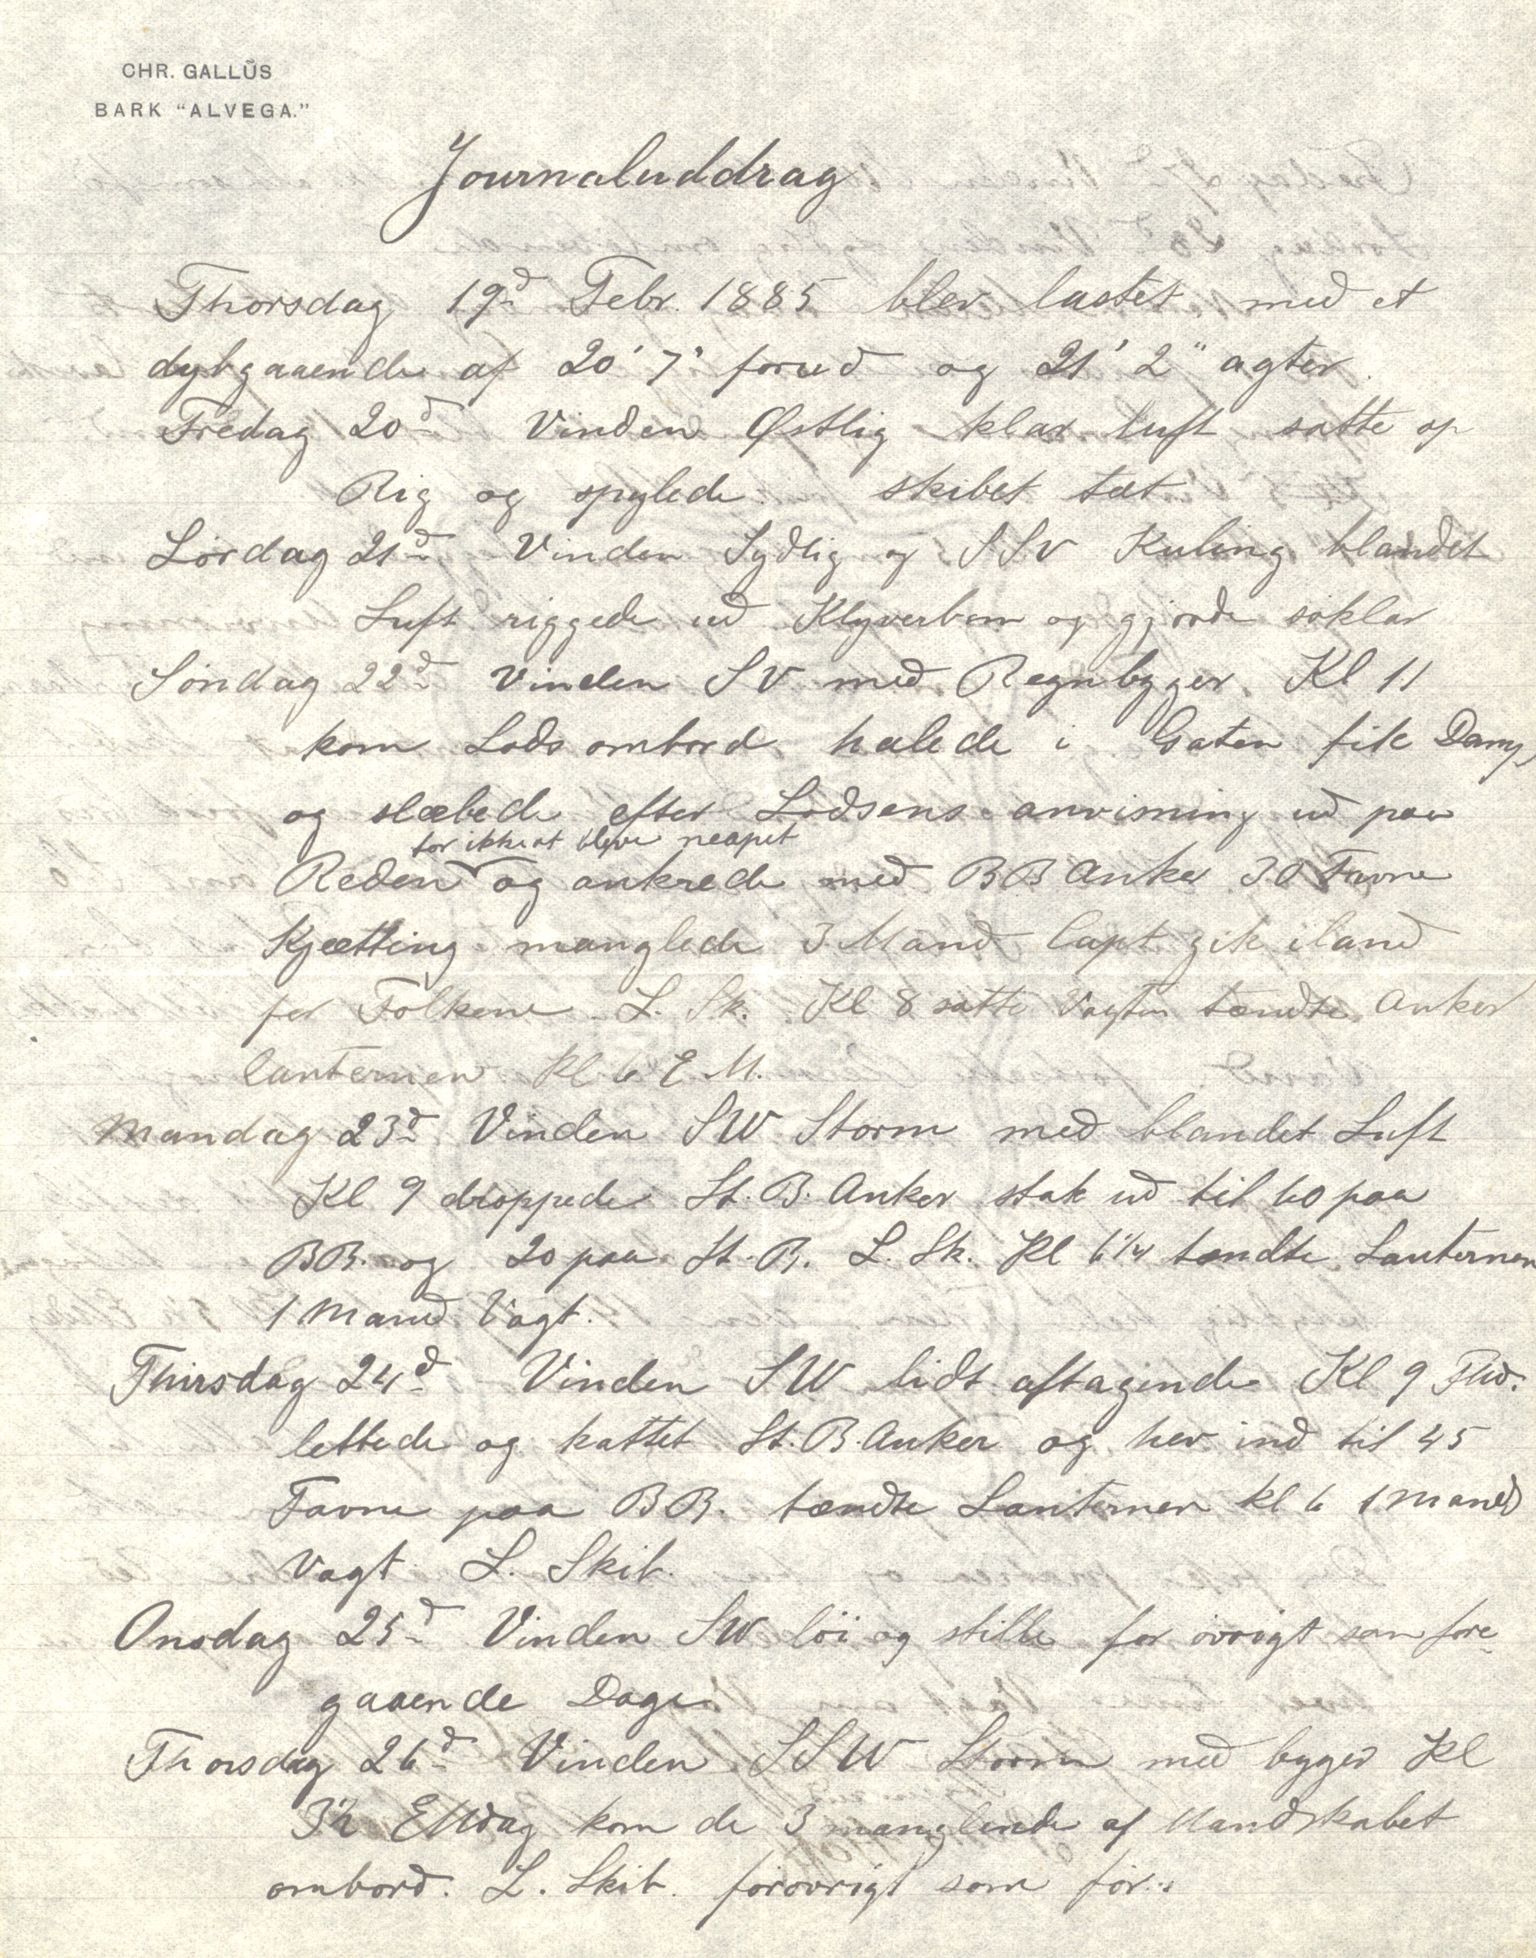 CHR. GALLÜS
BARK "ALVEGA."
Journaluddrag
Thorsdag 19d Febr. 1885 blev lastet med et
dybgaaende af 20' 7" forud og 21' 2" agter.
Fredag 20d Vinden Østlig klar luft satte op
Rig og spylede. skibet tæt
Lørdag 21d Vinden Sydlig og SSV Kuling blandet
Luft riggede ud Klyverbom og gjorde søklar
Søndag 22d Vinden SV med Regnbyger. Kl 11
kom Lods ombord halede i Gaten fik Damp
og slæbede efter Lodsens anvisning ud paa
for ikke at blive neapet
Reden og ankrede med BB Anker 30 Favne
Kjætting manglede 3 Mand Capt gik iland
for Folkene. L. Sk. Kl 8 satte Vagten tændte Anker
lanternen Kl 6 E M.
Mandag 23d Vinden SW Storm med blandet Luft
Kl 9 droppede St. B. Anker stak ud til 60 paa
BB. og 20 paa St. B. L. Sk. Kl 6 1/4 tændte Lanternen
1 Mand Vagt.
Thirsdag 24d Vinden SW lidt aftagende Kl 9 Fmd.
lettede og kattet St. B. Anker og hev ind til 45
Favne paa BB. tændte Lanternen kl 6 1 Mand
Vagt L. Skib.
Onsdag 25d Vinden SW löi og stille for övrigt som fore-
gaaende Dage
Thorsdag 26d Vinden SSW Storm med byger Kl
3 1/2 EMdag kom de 3 manglende af Mandskabet
ombord. L. Skib. forøvrigt som før.